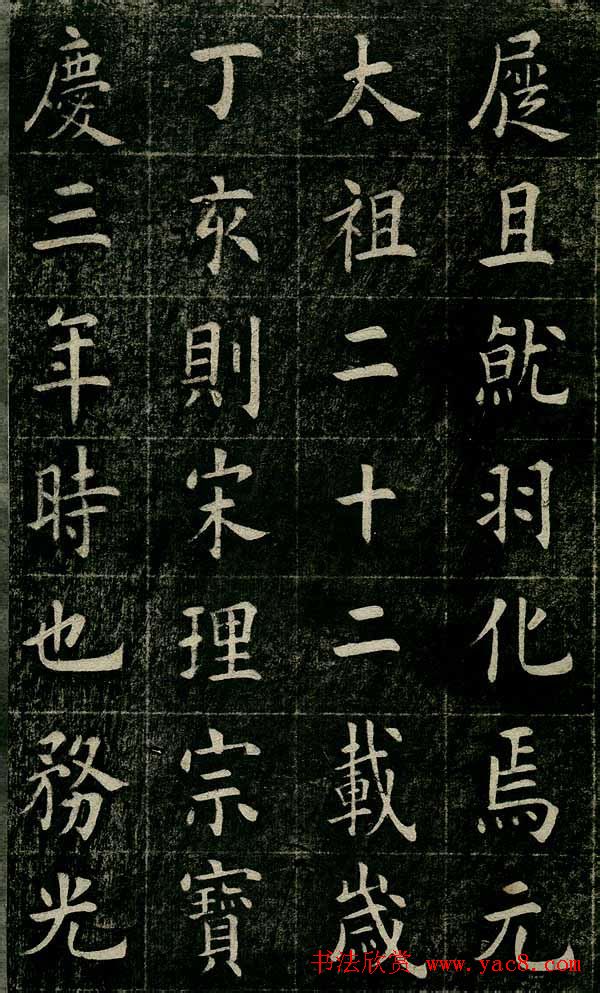 屣且就羽化焉元
太祖二十二載歲
丁亥則宋理宗寶
慶三年時也務光
书法欣赏 www.yac8.com